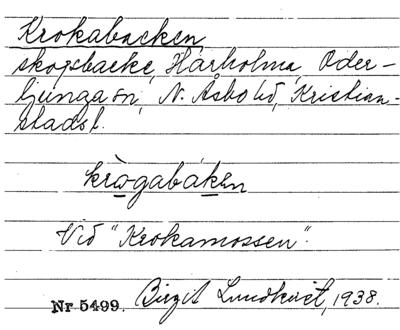 Krokabacken,
skogsbacke, Harholma, Oder-
ljunga sn, N. Åsbo hd, Kristian-
stads l.
krògabáken
Vid "Krokamossen".
Nr 5499. Birgit Lundkvist, 1938.